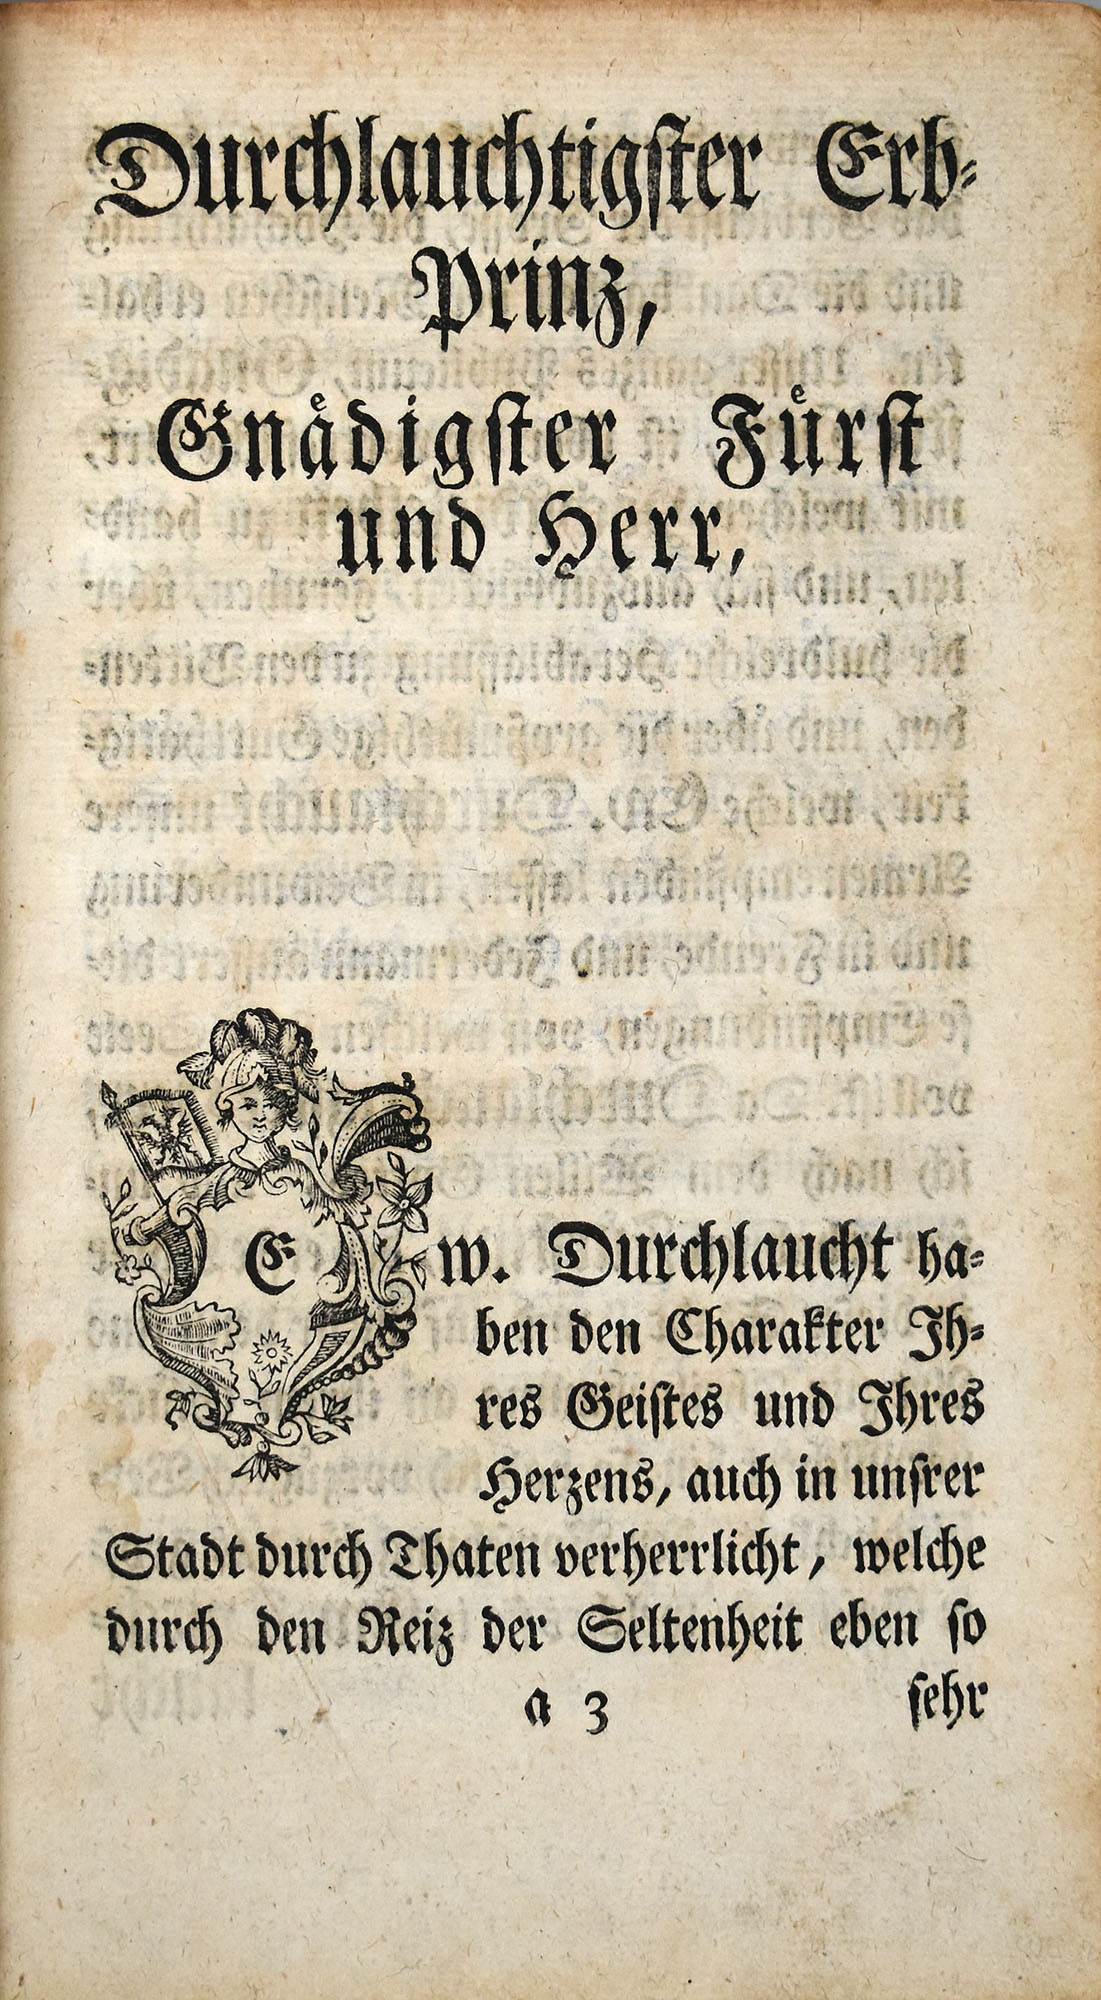 Durchlauchtigſter Erb⸗
Prinz,
Gnaͤdigſter Fuͤrſt
und Herr,
Ew. Durchlaucht ha⸗
ben den Charakter Ih⸗
res Geiſtes und Ihres
Herzens, auch in unſrer
Stadt durch Thaten verherrlicht, welche
durch den Reiz der Seltenheit eben ſo
a 3 ſehr